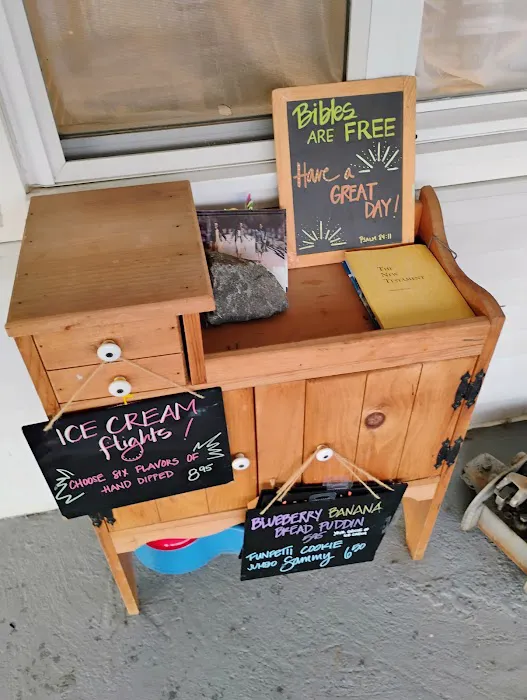 Bibles
ARE FREE
Have a
GREAT
DAY!
PSALM 84:11
THE
NEW
TESTAMENT
ICE CREAM
flights!
CHOOSE SIX FLAVORS OF
HAND DIPPED 8.95
BLUEBERRY BANANA
BREAD PUDDIN
5.95
FUNFETTI COOKIE
JUMBO Sammy 6.00